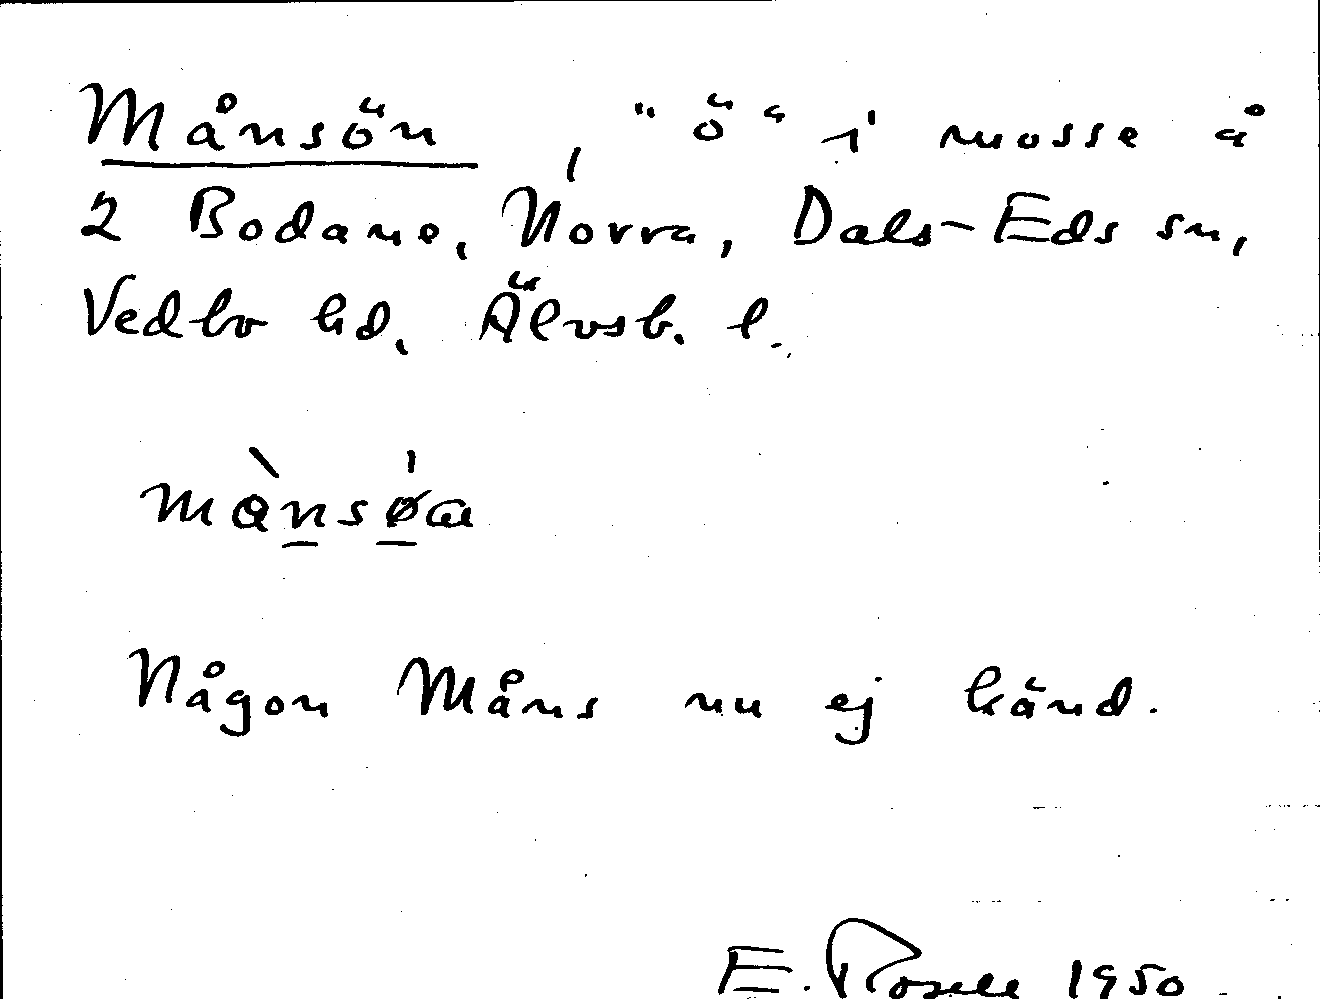 Månsön, "ö" i mosse å
2 Bodane, Norra, Dals-Eds sn,
Vedbo hd, Älvsb. l.
Någon Måns nu ej känd.
E. Rosell 1950